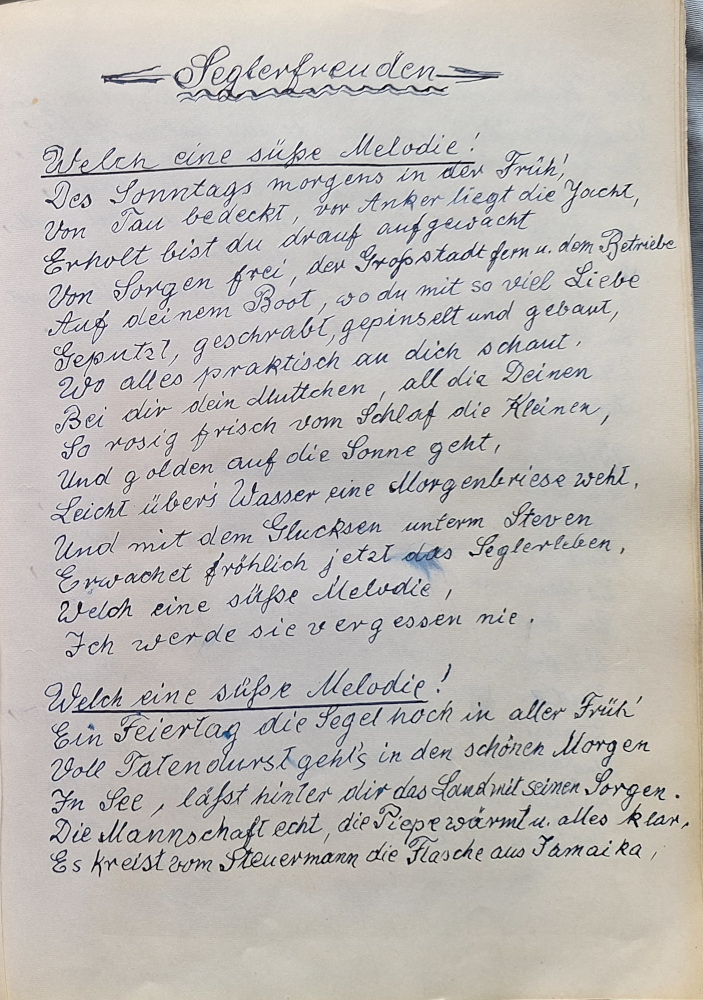 Seglerfreuden
Welch eine süße Melodie!
Des Sonntags morgens in der Früh',
Von Tau bedeckt, vor Anker liegt die Yacht,
Erholt bist du drauf aufgewacht
Von Sorgen frei, der Großstadt fern u. dem Betriebe
Auf deinem Boot, wo du mit so viel Liebe
Geputzt, geschrabt, gepinselt und gebaut,
Wo alles praktisch an dich schaut.
Bei dir dein Muttchen, all die Deinen
So rosig frisch vom Schlaf die Kleinen,
Und golden auf die Sonne geht,
Leicht über's Wasser eine Morgenbriese weht,
Und mit dem Glucksen unterm Steven
Erwachet fröhlich jetzt das Seglerleben,
Welch eine süße Melodie,
Ich werde sie vergessen nie.
Welch eine süße Melodie!
Ein Feiertag die Segel hoch in aller Früh'
Voll Tatendurst geht's in den schönen Morgen
In See, läßt hinter dir das Land mit seinen Sorgen.
Die Mannschaft echt, die Piepe wärmt u. alles klar,
Es kreist vom Steuermann die Flasche aus Jamaika,